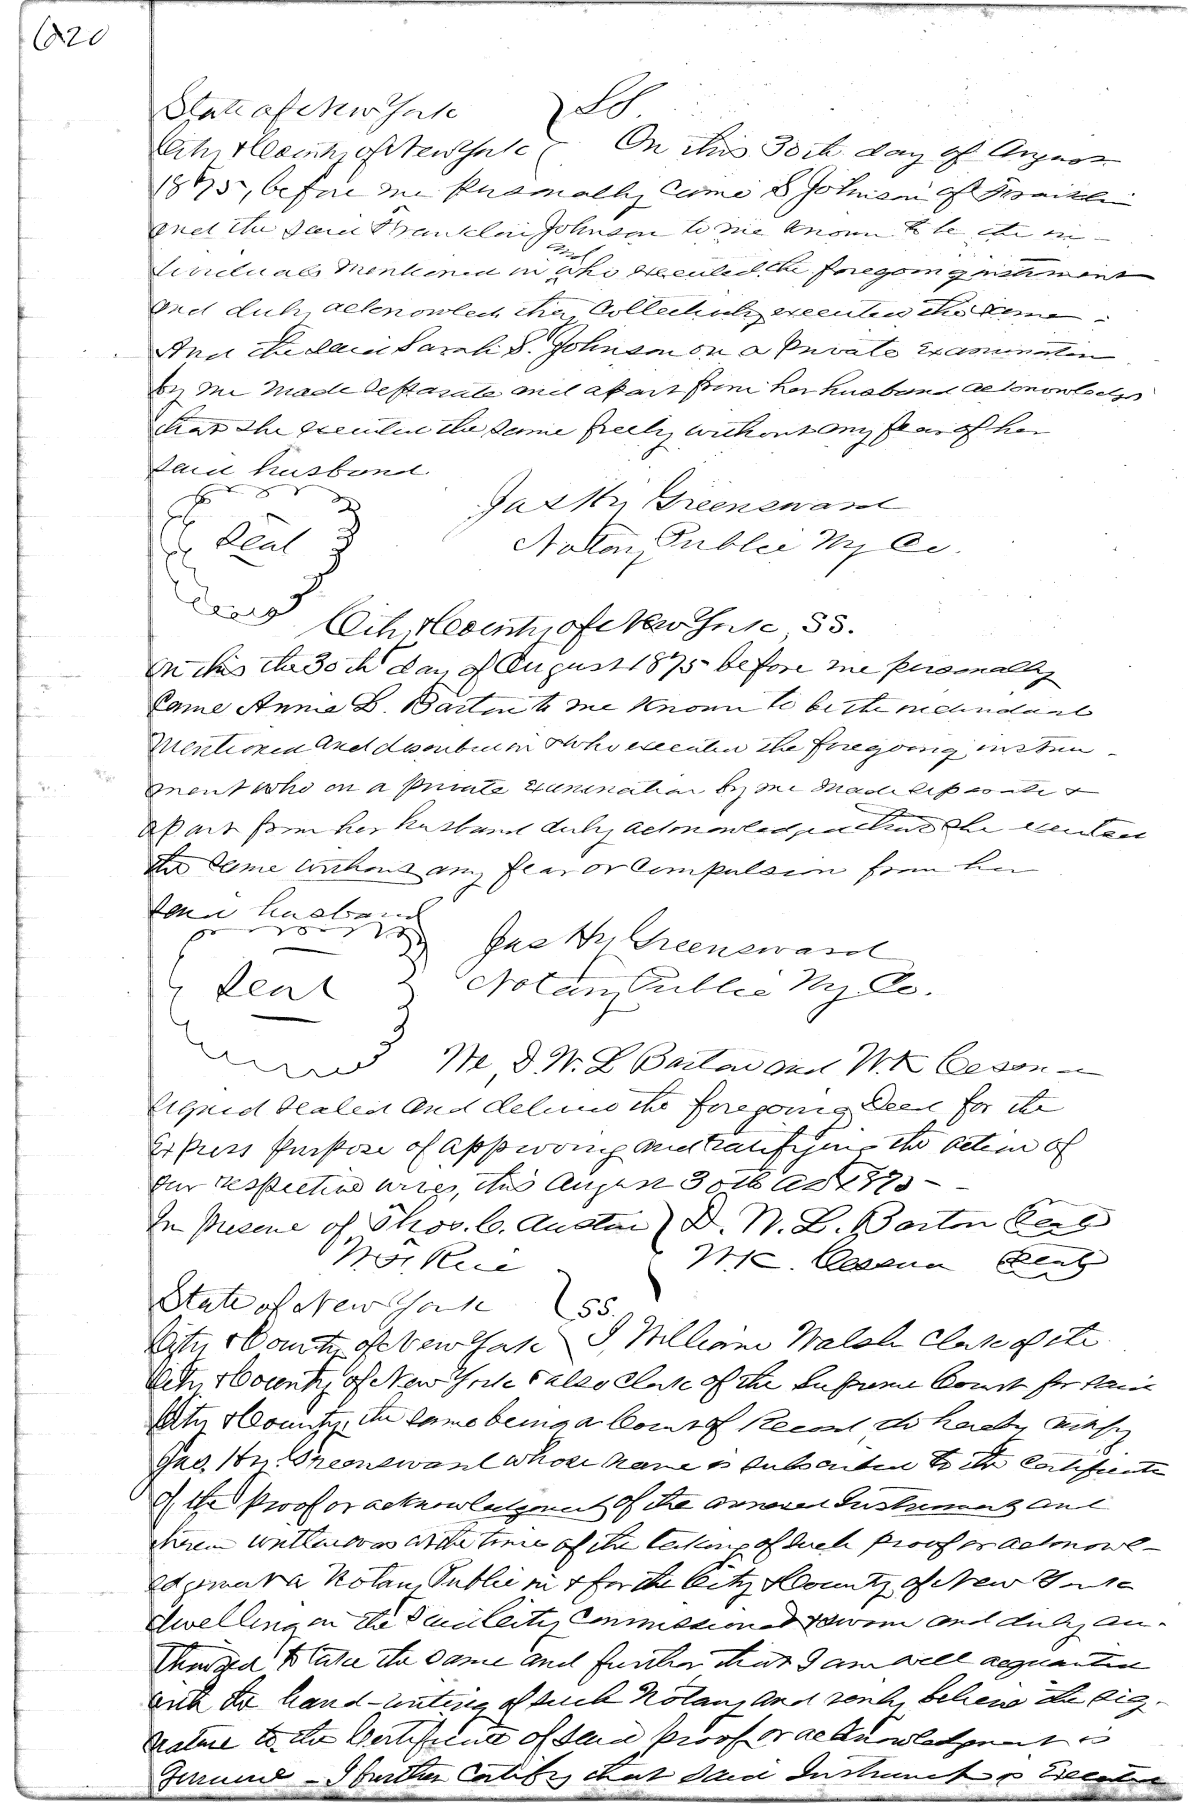 620
State of New York } SS.
City & County of New York { On this 30th day of August
1875, before me personally came S Johnson of Franklin
and the said Franklin Johnson to me known to be the in-
dividuals mentioned in and who executed the foregoing instrument
and duly acknowled they Collectively executed the same.
And the said Sarah S. Johnson on a Private examination
by me made separate and apart from her husband acknowledges
that she executed the same freely without any fear of her
said husband.
Jas Hy Greensward
Seal Notary Public Ny Co.
City & County of New York, SS.
On this the 30th day of August 1875 before me personally
Came Annie L. Barton to me Known to be the individual
Mentioned and described in & who executed the foregoing instru-
ment who on a private examination by me made separate &
apart from her husband duly acknowledged that she executed
the same without any fear or compulsion from her
said husband
Jas Hy Greensward
Seal Notary Public Ny Co.
We, D. W. L Barton and W. K Cessna
signed sealed and deliver the foregoing Deed for the
Express purpose of approving and ratifying the action of
our respective wives, this August 30th AD 1875 - -
In presence of Thos. C. Austin } D. W. L. Barton Seal
W. F. Rice W. K. Cessna Seal
State of New York } SS.
City & County of New York } I, William Walsh Clerk of the
City & County of New York & also Clerk of the Supreme Court for said
City & County, the same being a Court of Record do hereby certify
Jas. Hy. Greensward whose name is subscribed to the Certificate
of the proof or acknowledgment of the annexed Instrument and
therein written was at the time of the taking of such proof or acknowl-
edgement a Notary Public in & for the City & County of New York
dwelling in the said City commissioned & sworn and duly au-
thorized to take the same and further that I am well acquainted
with the hand-writing of such Notary and verily believe the sig-
nature to the Certificate of said proof or acknowledgment is
genuine - I further certify that said Instrument is Executed